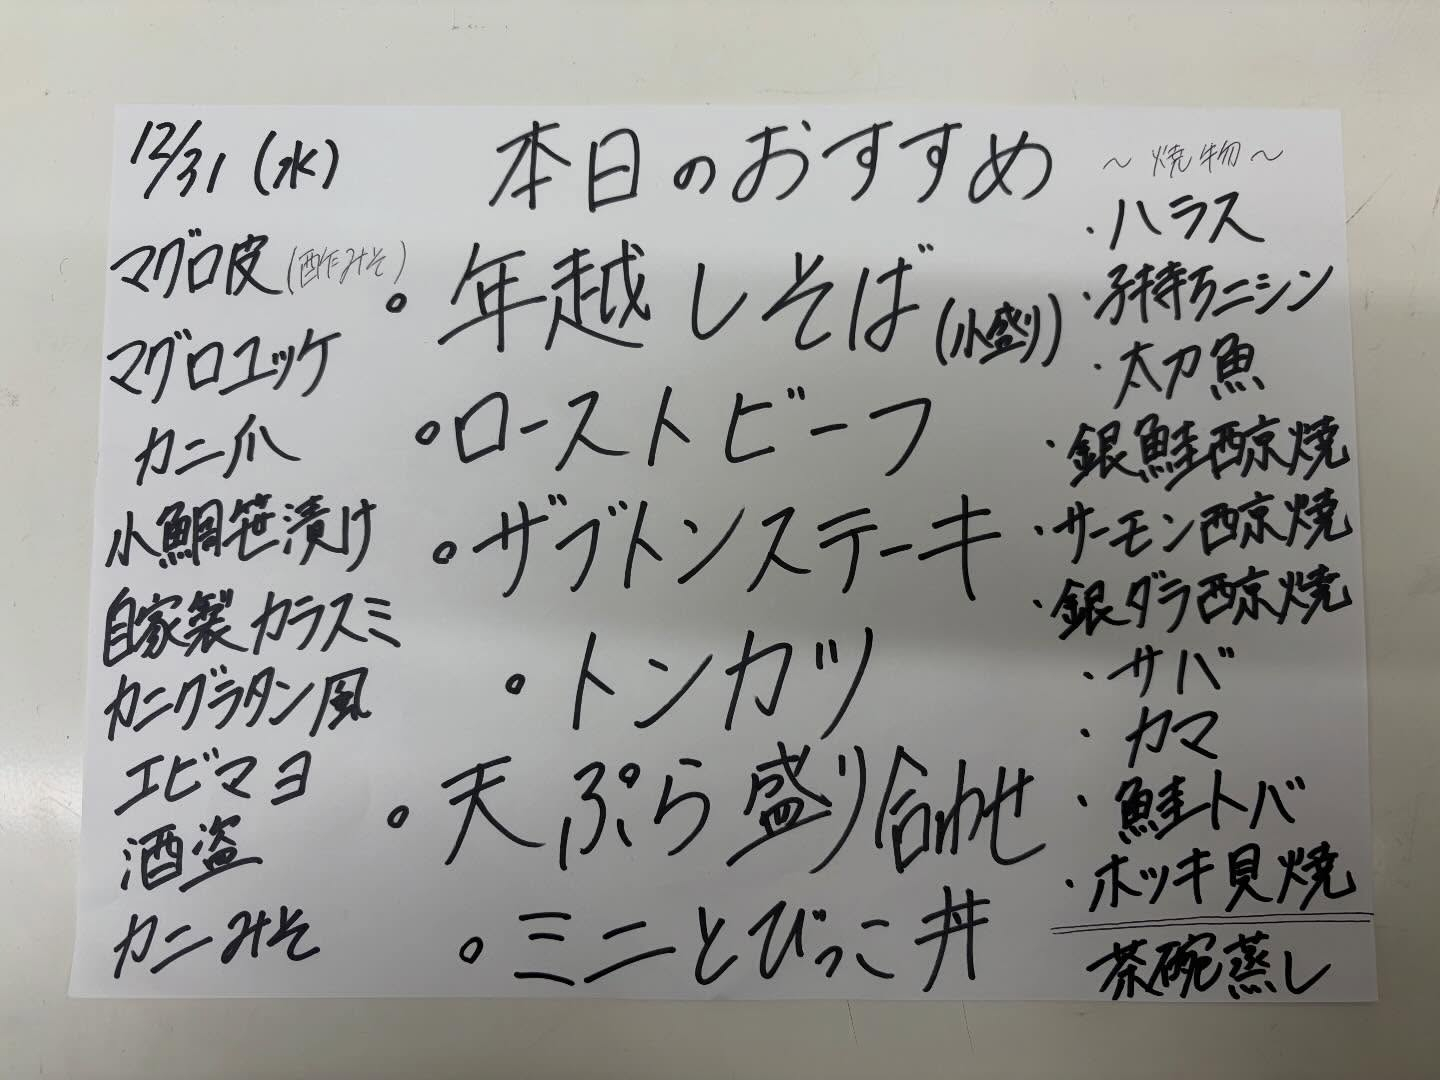 12/31(水)
本日のおすすめ
マグロ皮(酢みそ)
マグロユッケ
カニ爪
小鯛笹漬け
自家製カラスミ
カニグラタン風
エビマヨ
酒盗
カニみそ
・年越しそば(小盛り)
・ローストビーフ
・ザブトンステーキ
・トンカツ
・天ぷら盛り合わせ
・ミニとびっこ丼
～焼物～
・ハラス
・子持ちニシン
・太刀魚
・銀鮭西京焼
・サーモン西京焼
・銀ダラ西京焼
・サバ
・カマ
・鮭トバ
・ホッキ貝焼
茶碗蒸し